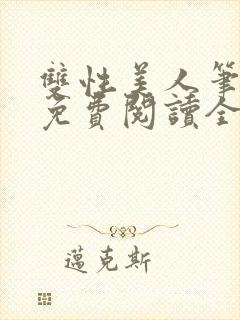 雙性美人筆
免費閱讀全
邁克斯